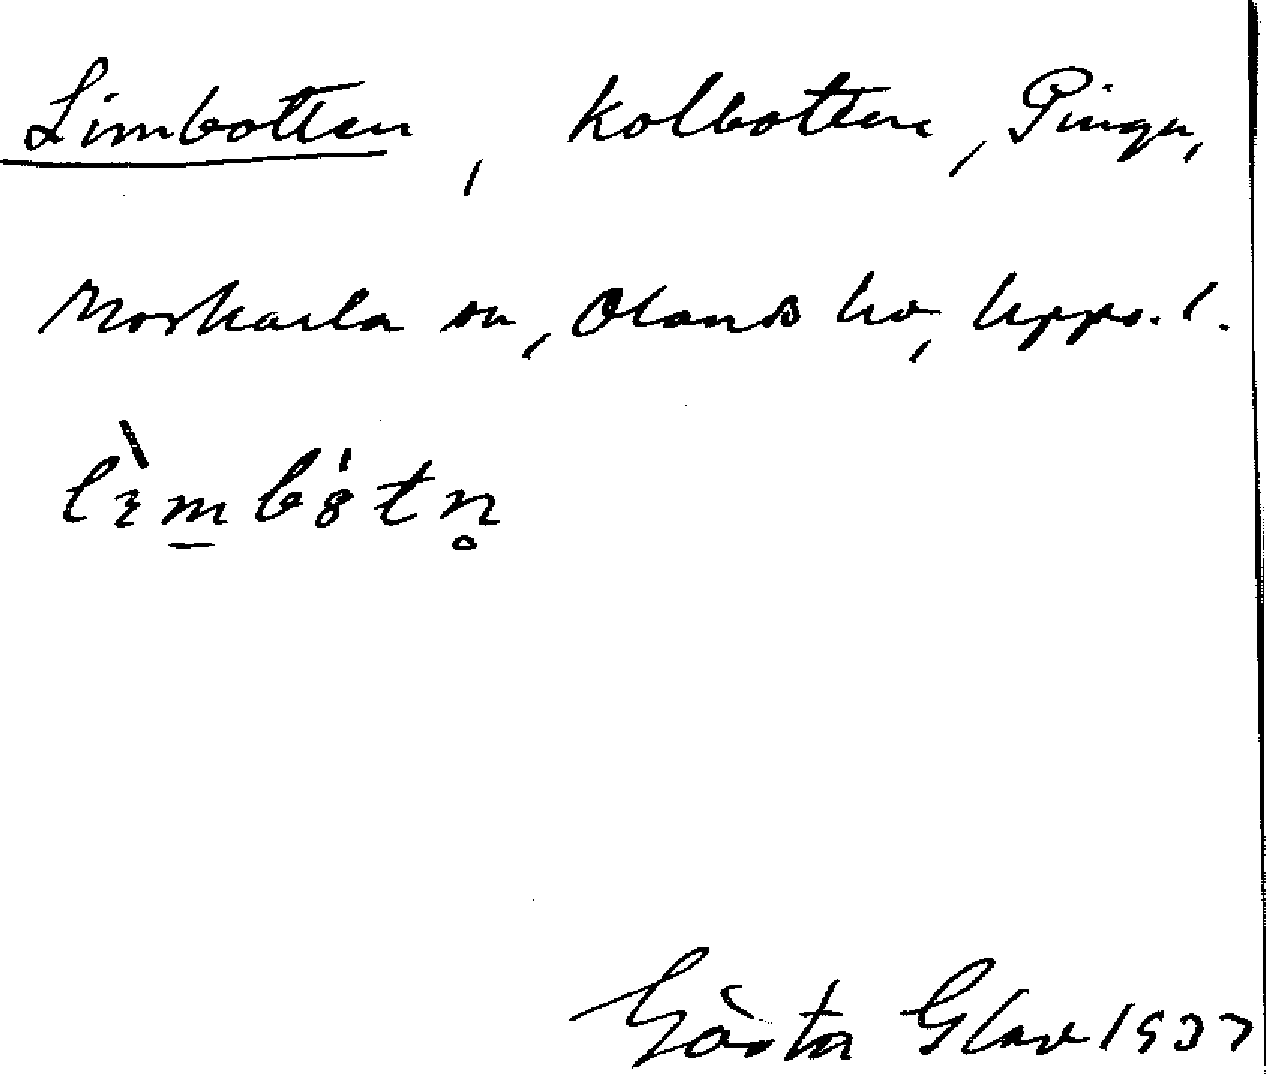 Limbotten, kolbotten, Pingu,
Morkarla sn, Olands hd, Upps. l.
Gösta Glav 1937